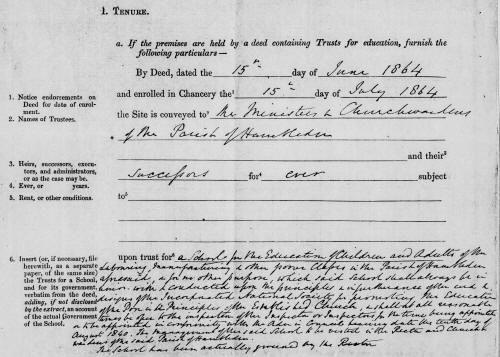 1. TENURE.
a. If the premises are held by a deed containing Trusts for education, furnish the
following particulars—
By Deed, dated the 15th day of June 1864
1. Notice endorsements on
Deed for date of enrol-
ment.
and enrolled in Chancery the¹ 15th day of July 1864
2. Names of Trustees.
the Site is conveyed to² The Ministers & Churchwardens
of the Parish of Hambledon
3. Heirs, successors, execu-
tors, and administrators,
or as the case may be.
and their³
4. Ever, or years.
Successors for⁴ ever subject
5. Rent, or other conditions.
to⁵
6. Insert (or, if necessary, file
herewith, as a separate
paper, of the same size)
the Trusts for a School,
and for its government,
verbatim from the deed,
adding, if not disclosed
by the extract, an account
of the actual Government
of the School.
upon trust for⁶ a School for the Education of Children and Adults of the
Labouring, manufacturing & other poorer Classes in the Parish of Hambledon
aforesaid, & for no other purpose, which said School shall always be in
union with & conducted upon the principles & in furtherance of the end &
designs of the Incorporated National Society for promoting the Education
of the Poor in the Principles of the Established Church, & shall at all reasonable
times be open to the inspection of the Inspector or Inspectors for the time being appointed
or to be appointed in conformity with the Order in Council bearing date the tenth day of
August 1840. The management of the said School to be vested in the Rector and Church
wardens of the said Parish of Hambledon.
The School has been actually governed by the Rector